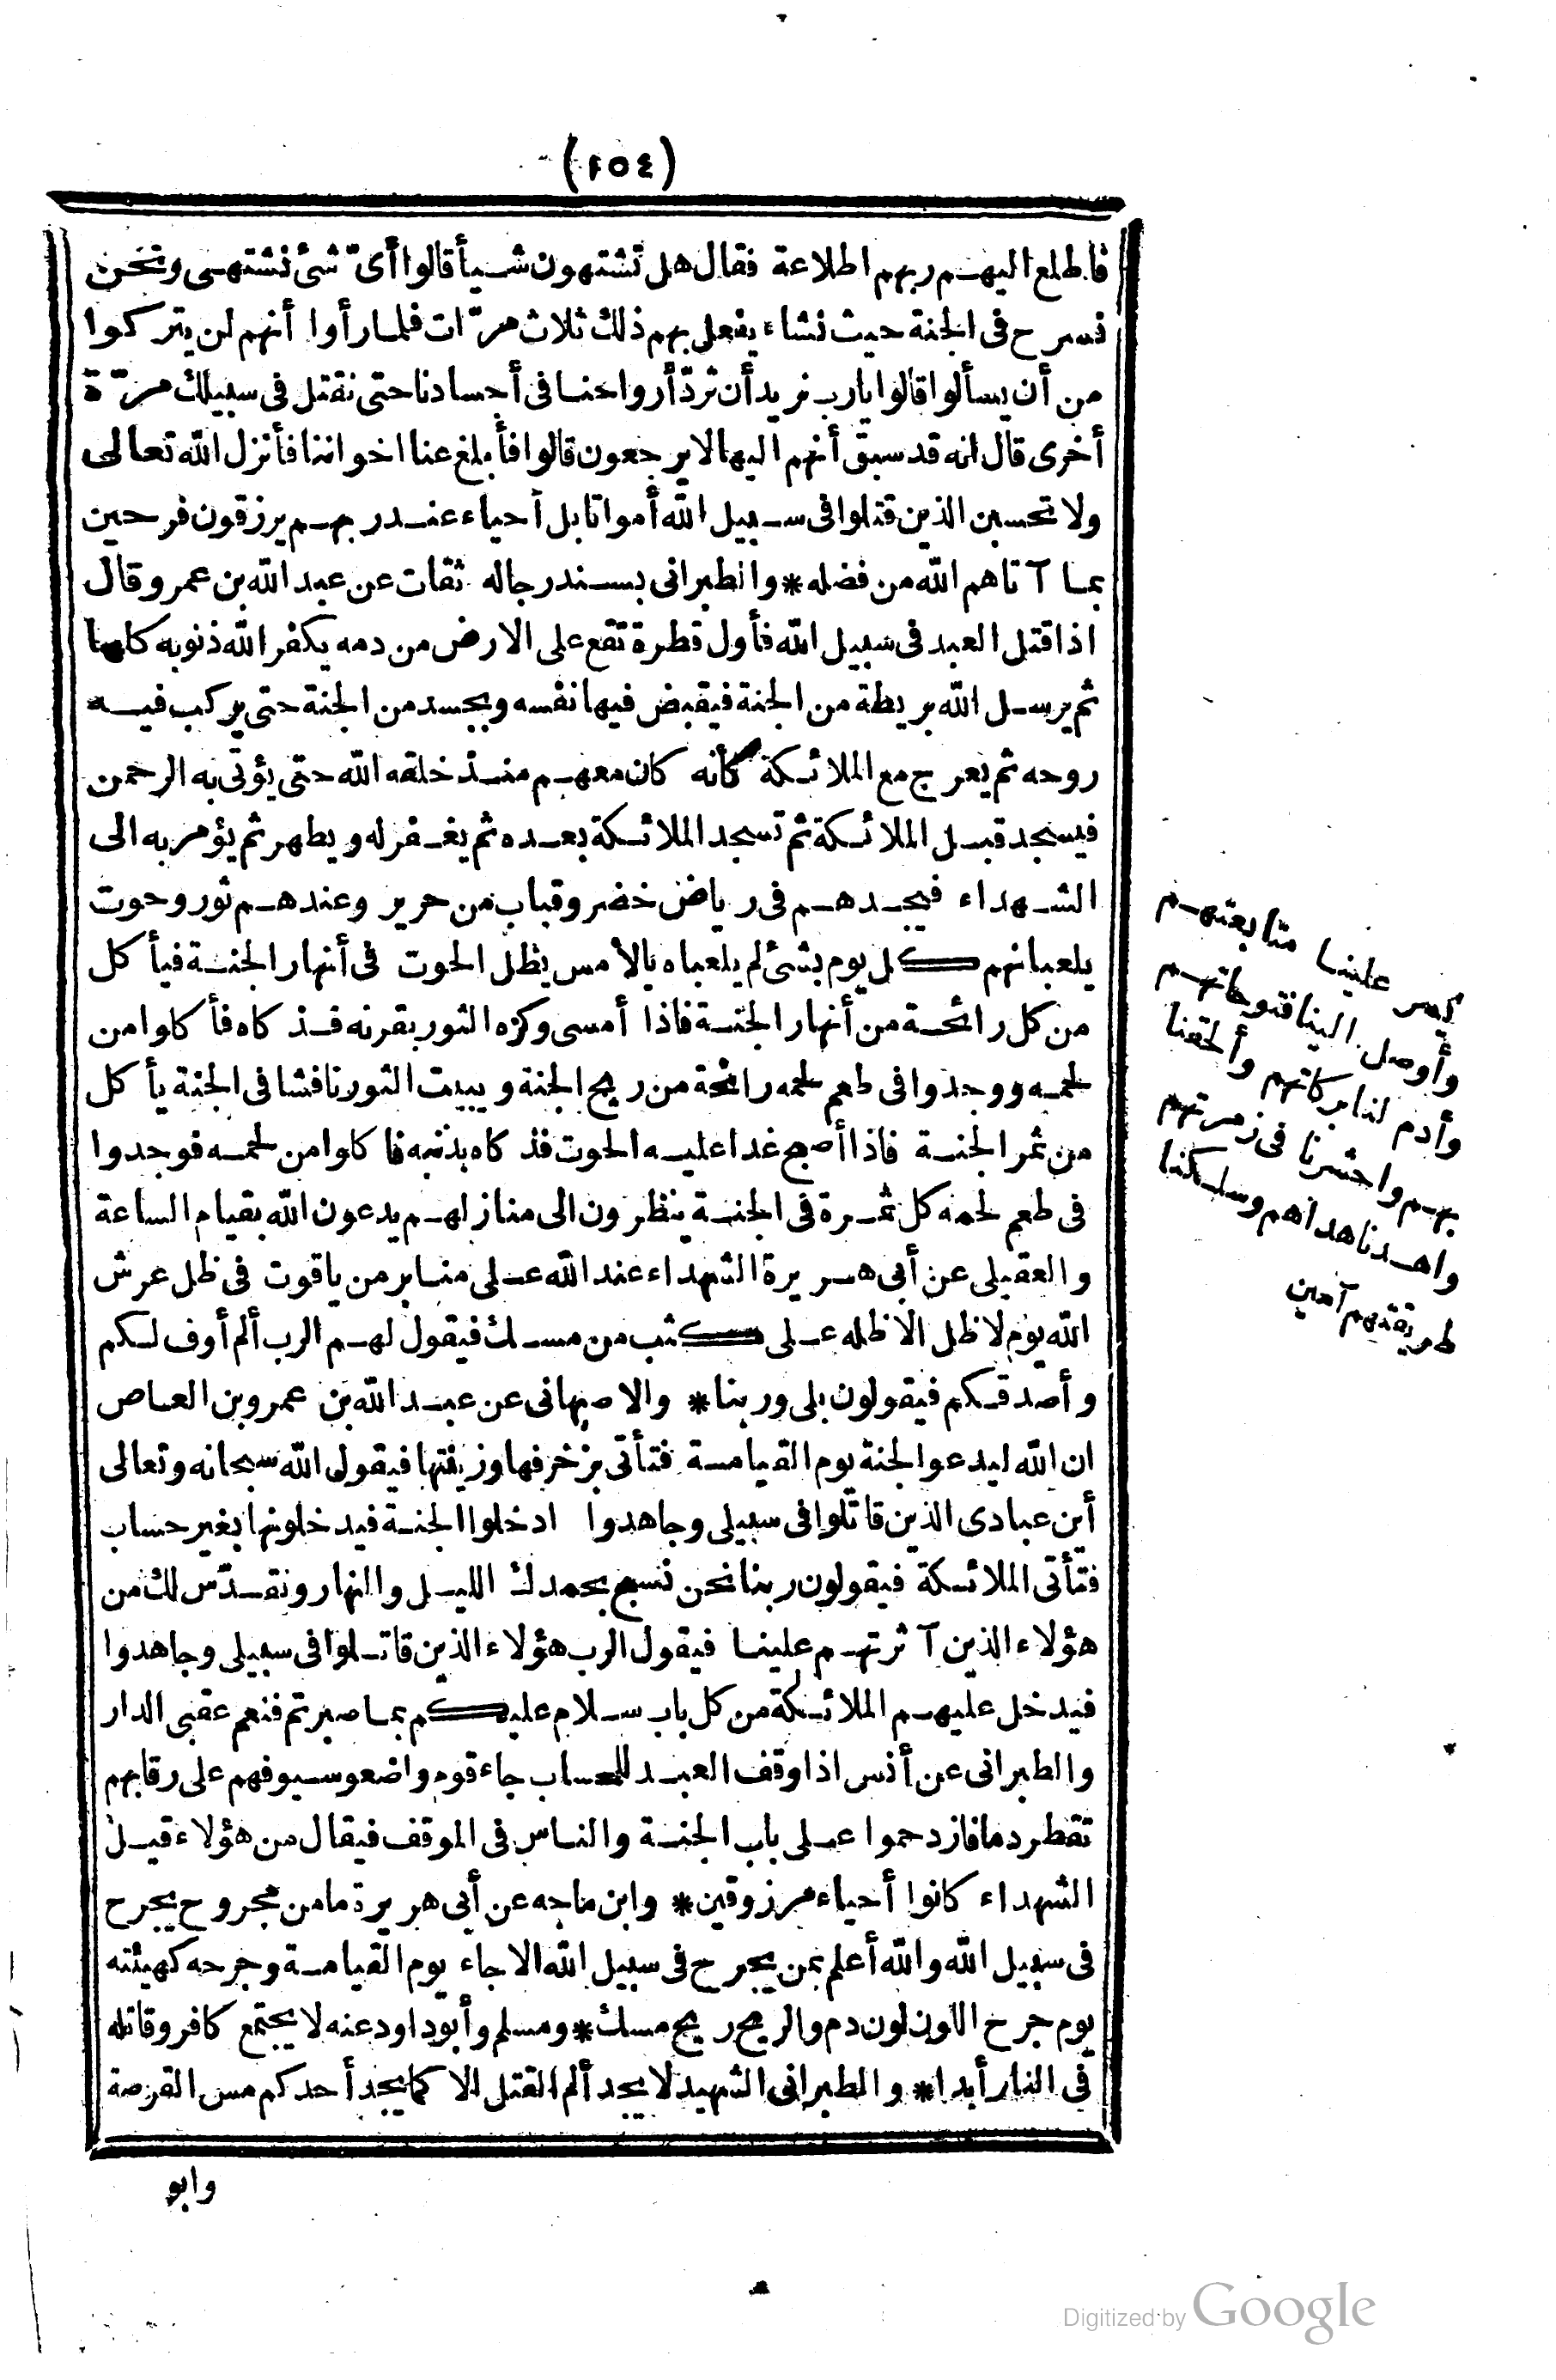 (٢٥٤)
فاطلع اليهم ربهم اطلاعة فقال هل تشتهون شيأ قالوا أىّ شئ نشتهى ونحن
نسرح فى الجنة حيث نشاء يفعل بهم ذلك ثلاث مرّات فلما رأوا أنهم لن يتركوا
من أن يسألوا قالوا يارب نريد أن تردّ أرواحنا فى أجسادنا حتى نقتل فى سبيلك مرّة
أخرى قال انه قد سبق أنهم اليها لايرجعون قالوا فأبلغ عنا اخواننا فأنزل الله تعالى
ولا تحسبن الذين قتلوا فى سبيل الله أمواتا بل أحياء عند ربهم يرزقون فرحين
بما آتاهم الله من فضله * والطبرانى بسند رجاله ثقات عن عبد الله بن عمر وقال
اذا قتل العبد فى سبيل الله فأول قطرة تقع على الارض من دمه يكفر الله ذنوبه كلها
ثم يرسل الله بريطة من الجنة فيقبض فيها نفسه وبجسد من الجنة حتى يركب فيه
روحه ثم يعرج مع الملائكة كأنه كان معهم منذ خلقه الله حتى يؤتى به الرحمن
فيسجد قبل الملائكة ثم تسجد الملائكة بعده ثم يغفر له ويطهر ثم يؤمر به الى
الشهداء فيجدهم فى رياض خضر وقباب من حرير وعندهم ثور وحوت
يلعبانهم كل يوم بشئ لم يلعباه بالأمس يظل الحوت فى أنهار الجنة فيأكل
من كل رائحة من أنهار الجنة فاذا أمسى وكزه الثور بقرنه فذكاه فأكلوا من
لحمه ووجدوا فى طعم لحمه رائحة من ريح الجنة ويبيت الثور نافشا فى الجنة يأكل
من ثمر الجنة فاذا أصبح غدا عليه الحوت فذكاه بذنبه فاكلوا من لحمه فوجدوا
فى طعم لحمه كل ثمرة فى الجنة ينظرون الى منازلهم يدعون الله بقيام الساعة
والعقيلى عن أبى هريرة الشهداء عند الله على منابر من ياقوت فى ظل عرش
الله يوم لا ظل الا ظله على كثب من مسك فيقول لهم الرب ألم أوف لكم
وأصدقكم فيقولون بلى وربنا * والاصبهانى عن عبد الله بن عمرو بن العاص
ان الله ليدعو الجنة يوم القيامة فتأتى بزخرفها وزينتها فيقول الله سبحانه وتعالى
أين عبادى الذين قاتلوا فى سبيلى وجاهدوا ادخلوا الجنة فيدخلونها بغير حساب
فتأتى الملائكة فيقولون ربنا نحن نسبح بحمدك الليل والنهار ونقدّس لك من
هؤلاء الذين آثرتهم علينا فيقول الرب هؤلاء الذين قاتلوا فى سبيلى وجاهدوا
فيدخل عليهم الملائكة من كل باب سلام عليكم بما صبرتم فنعم عقبى الدار
والطبرانى عن أنس اذا وقف العبد للحساب جاء قوم واضعو سيوفهم على رقابهم
تقطر دما فازدحموا على باب الجنة والناس فى الموقف فيقال من هؤلاء قيل
الشهداء كانوا أحياء مرزوقين * وابن ماجه عن أبى هريرة ما من مجروح يجرح
فى سبيل الله والله أعلم بمن يجرح فى سبيل الله الا جاء يوم القيامة وجرحه كهيئته
يوم جرح اللون لون دم والريح ريح مسك * ومسلم وأبو داود عنه لا يجتمع كافر وقاتله
فى النار أبدا * والطبرانى الشهيد لا يجد ألم القتل الا كما يجد أحدكم مس القرصة
وابو
يسر علينا متابعتهم
وأوصل الينا فتوحاتهم
وأدم لنا بركاتهم وألحقنا
بهم واحشرنا فى زمرتهم
واهدنا هداهم وسلكنا
طريقتهم آمين
Digitized by Google